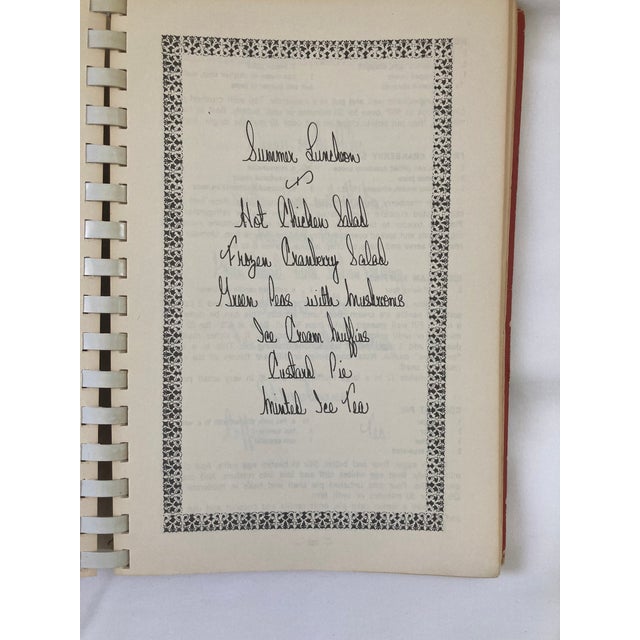 Summer Luncheon
Hot Chicken Salad
Frozen Cranberry Salad
Green Peas with Mushrooms
Ice Cream Muffins
Custard Pie
Minted Ice Tea